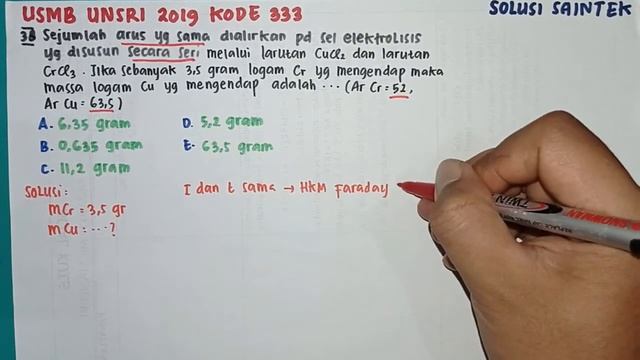 USMB UNSRI 2019 KODE 333
SOLUSI SAINTEK
38 Sejumlah arus yg sama dialirkan pd sel elektrolisis
yg disusun secara seri melalui larutan CuCl2 dan larutan
CrCl3. Jika sebanyak 3,5 gram logam Cr yg mengendap maka
massa logam Cu yg mengendap adalah ... (Ar Cr = 52,
Ar Cu = 63,5)
A. 6,35 gram
D. 5,2 gram
B. 0,635 gram
E. 63,5 gram
C. 11,2 gram
SOLUSI:
I dan t sama → HKM Faraday
mCr = 3,5 gr
mCu = ...?
TWIN
SNOWMAN